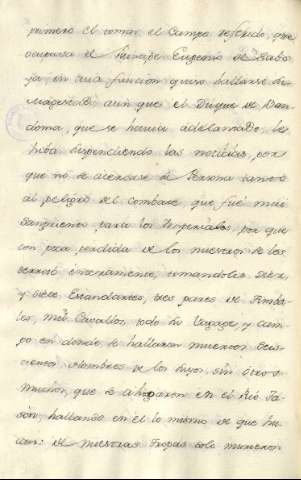 primero el tomar el Campo referido, que
ocupava el Principe Eugenio de Sabo
ya, en cuia función quiso hallarse su
Magestad, aun que el Duque de Van
doma, que se havia adelantado, le
iba suspendiendo las noticias, por
que nó se acercase su Persona tanto
al peligro del combate que fué mui
sangriento para los Imperiales, por que
con poca perdida de los nuestros se les
derrotó enteramente, tomandoles Diez
y siete Estandartes, tres pares de Timba
les, mil Cavallos, todo su Vagaje y Cam
po en donde, se hallaron muertos Seis
cientos Hombres de los suyos, sin otros
muchos, que se ahogaron en el Rio Ta
són, hallando en él lo mismo de que hu
ian: de nuestras Tropas solo murieron